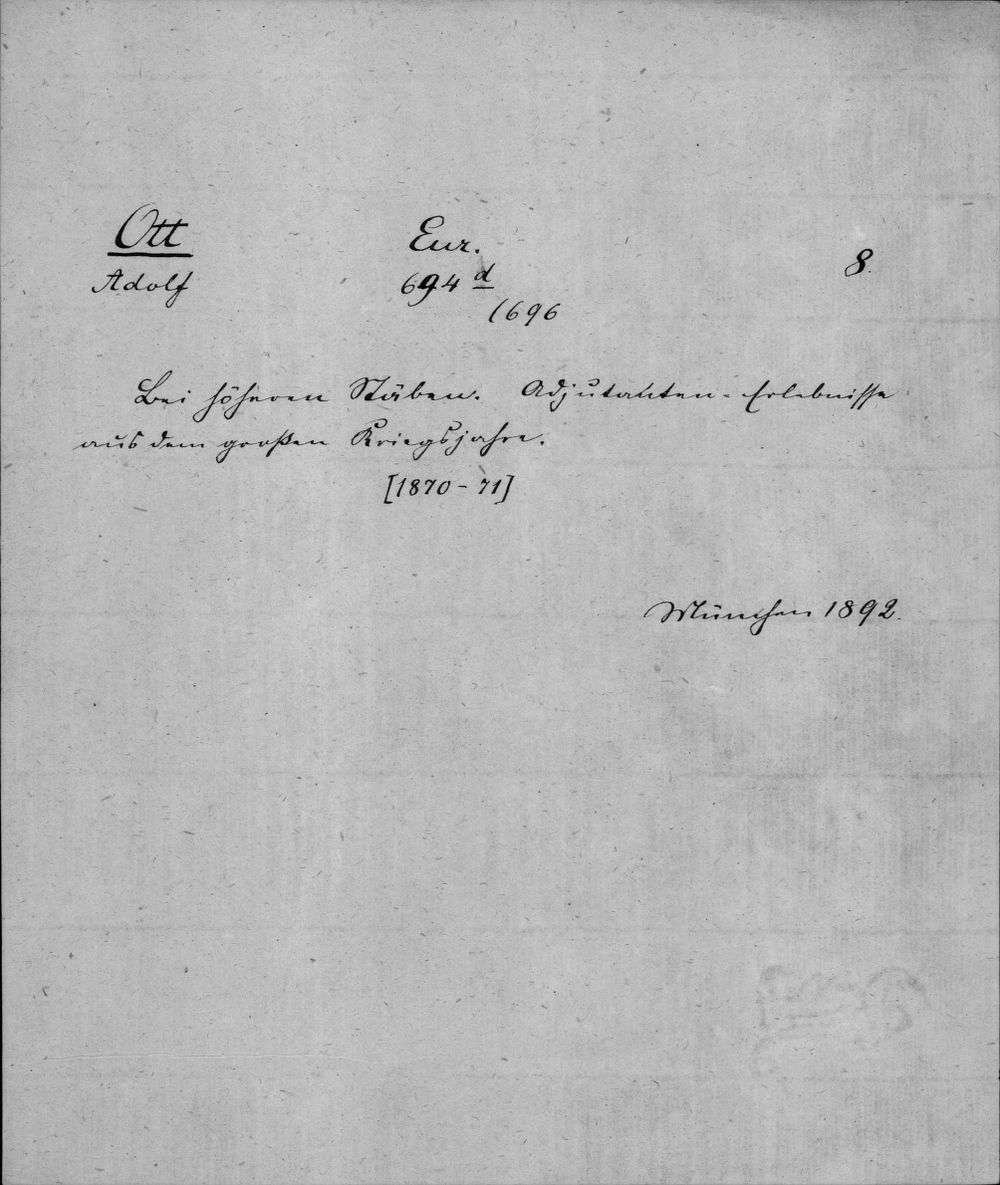 Ott
Adolf
Eur.
694 d
(696
8.
Bei höheren Stäben. Adjutanten-Erlebnisse
aus dem großen Kriegsjahre.
[1870-71]
München 1892.